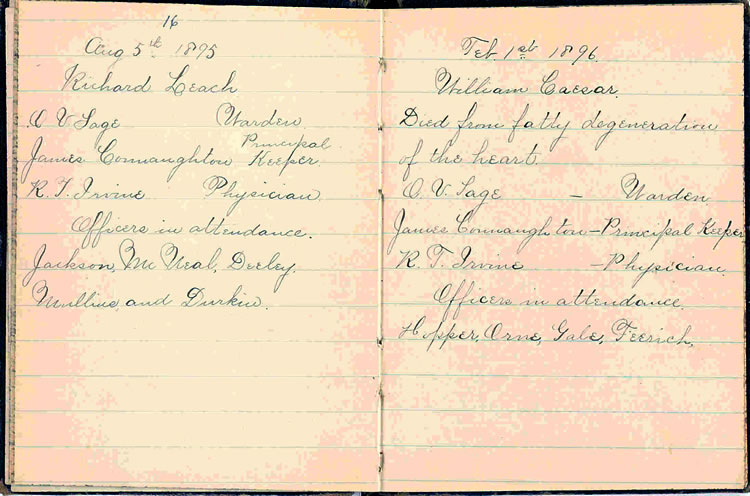 16
Aug 5th 1895
Richard Leach
O V Sage Warden
James Connaughton Principal Keeper
R. T. Irvine Physician
Officers in attendance.
Jackson, Mc Neal, Deeley.
Mullins, and Durkin.
Feb. 1st 1896.
William Caesar.
Died from fatty degeneration
of the heart.
O. V. Sage — Warden
James Connaughton – Principal Keeper
R. T. Irvine – Physician.
Officers in attendance.
Hopper, Orne, Gale, Feerich.